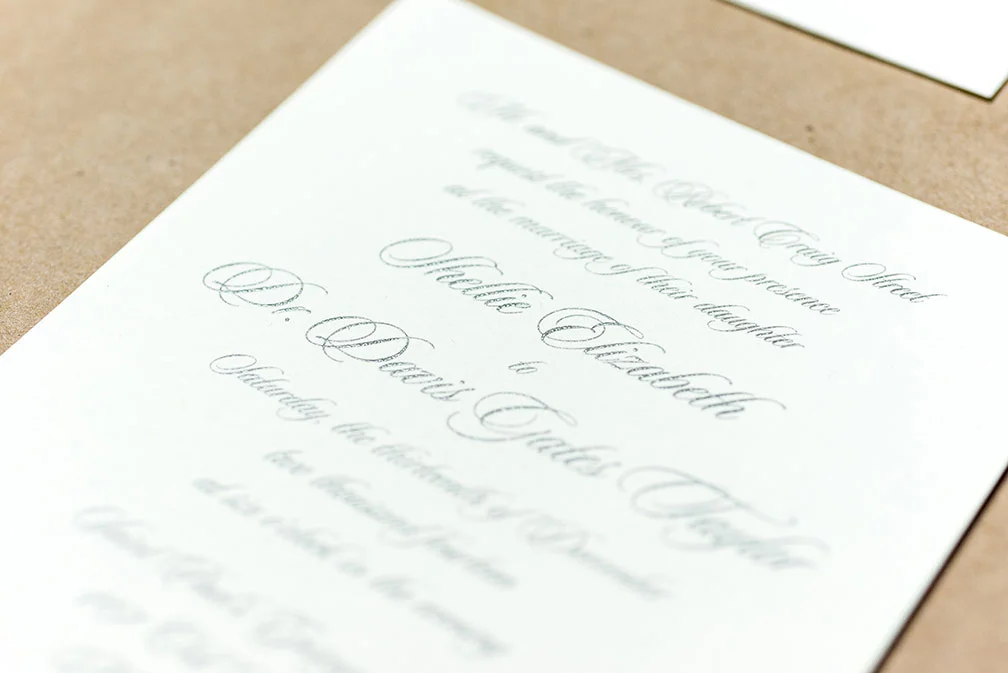 Mr. and Mrs. Robert Craig Street
request the honour of your presence
at the marriage of their daughter
Shellie Elizabeth
to
Dr. Davis Gates Taylor
Saturday, the thirteenth of December
two thousand fourteen
at six o'clock in the evening
Saint Paul's